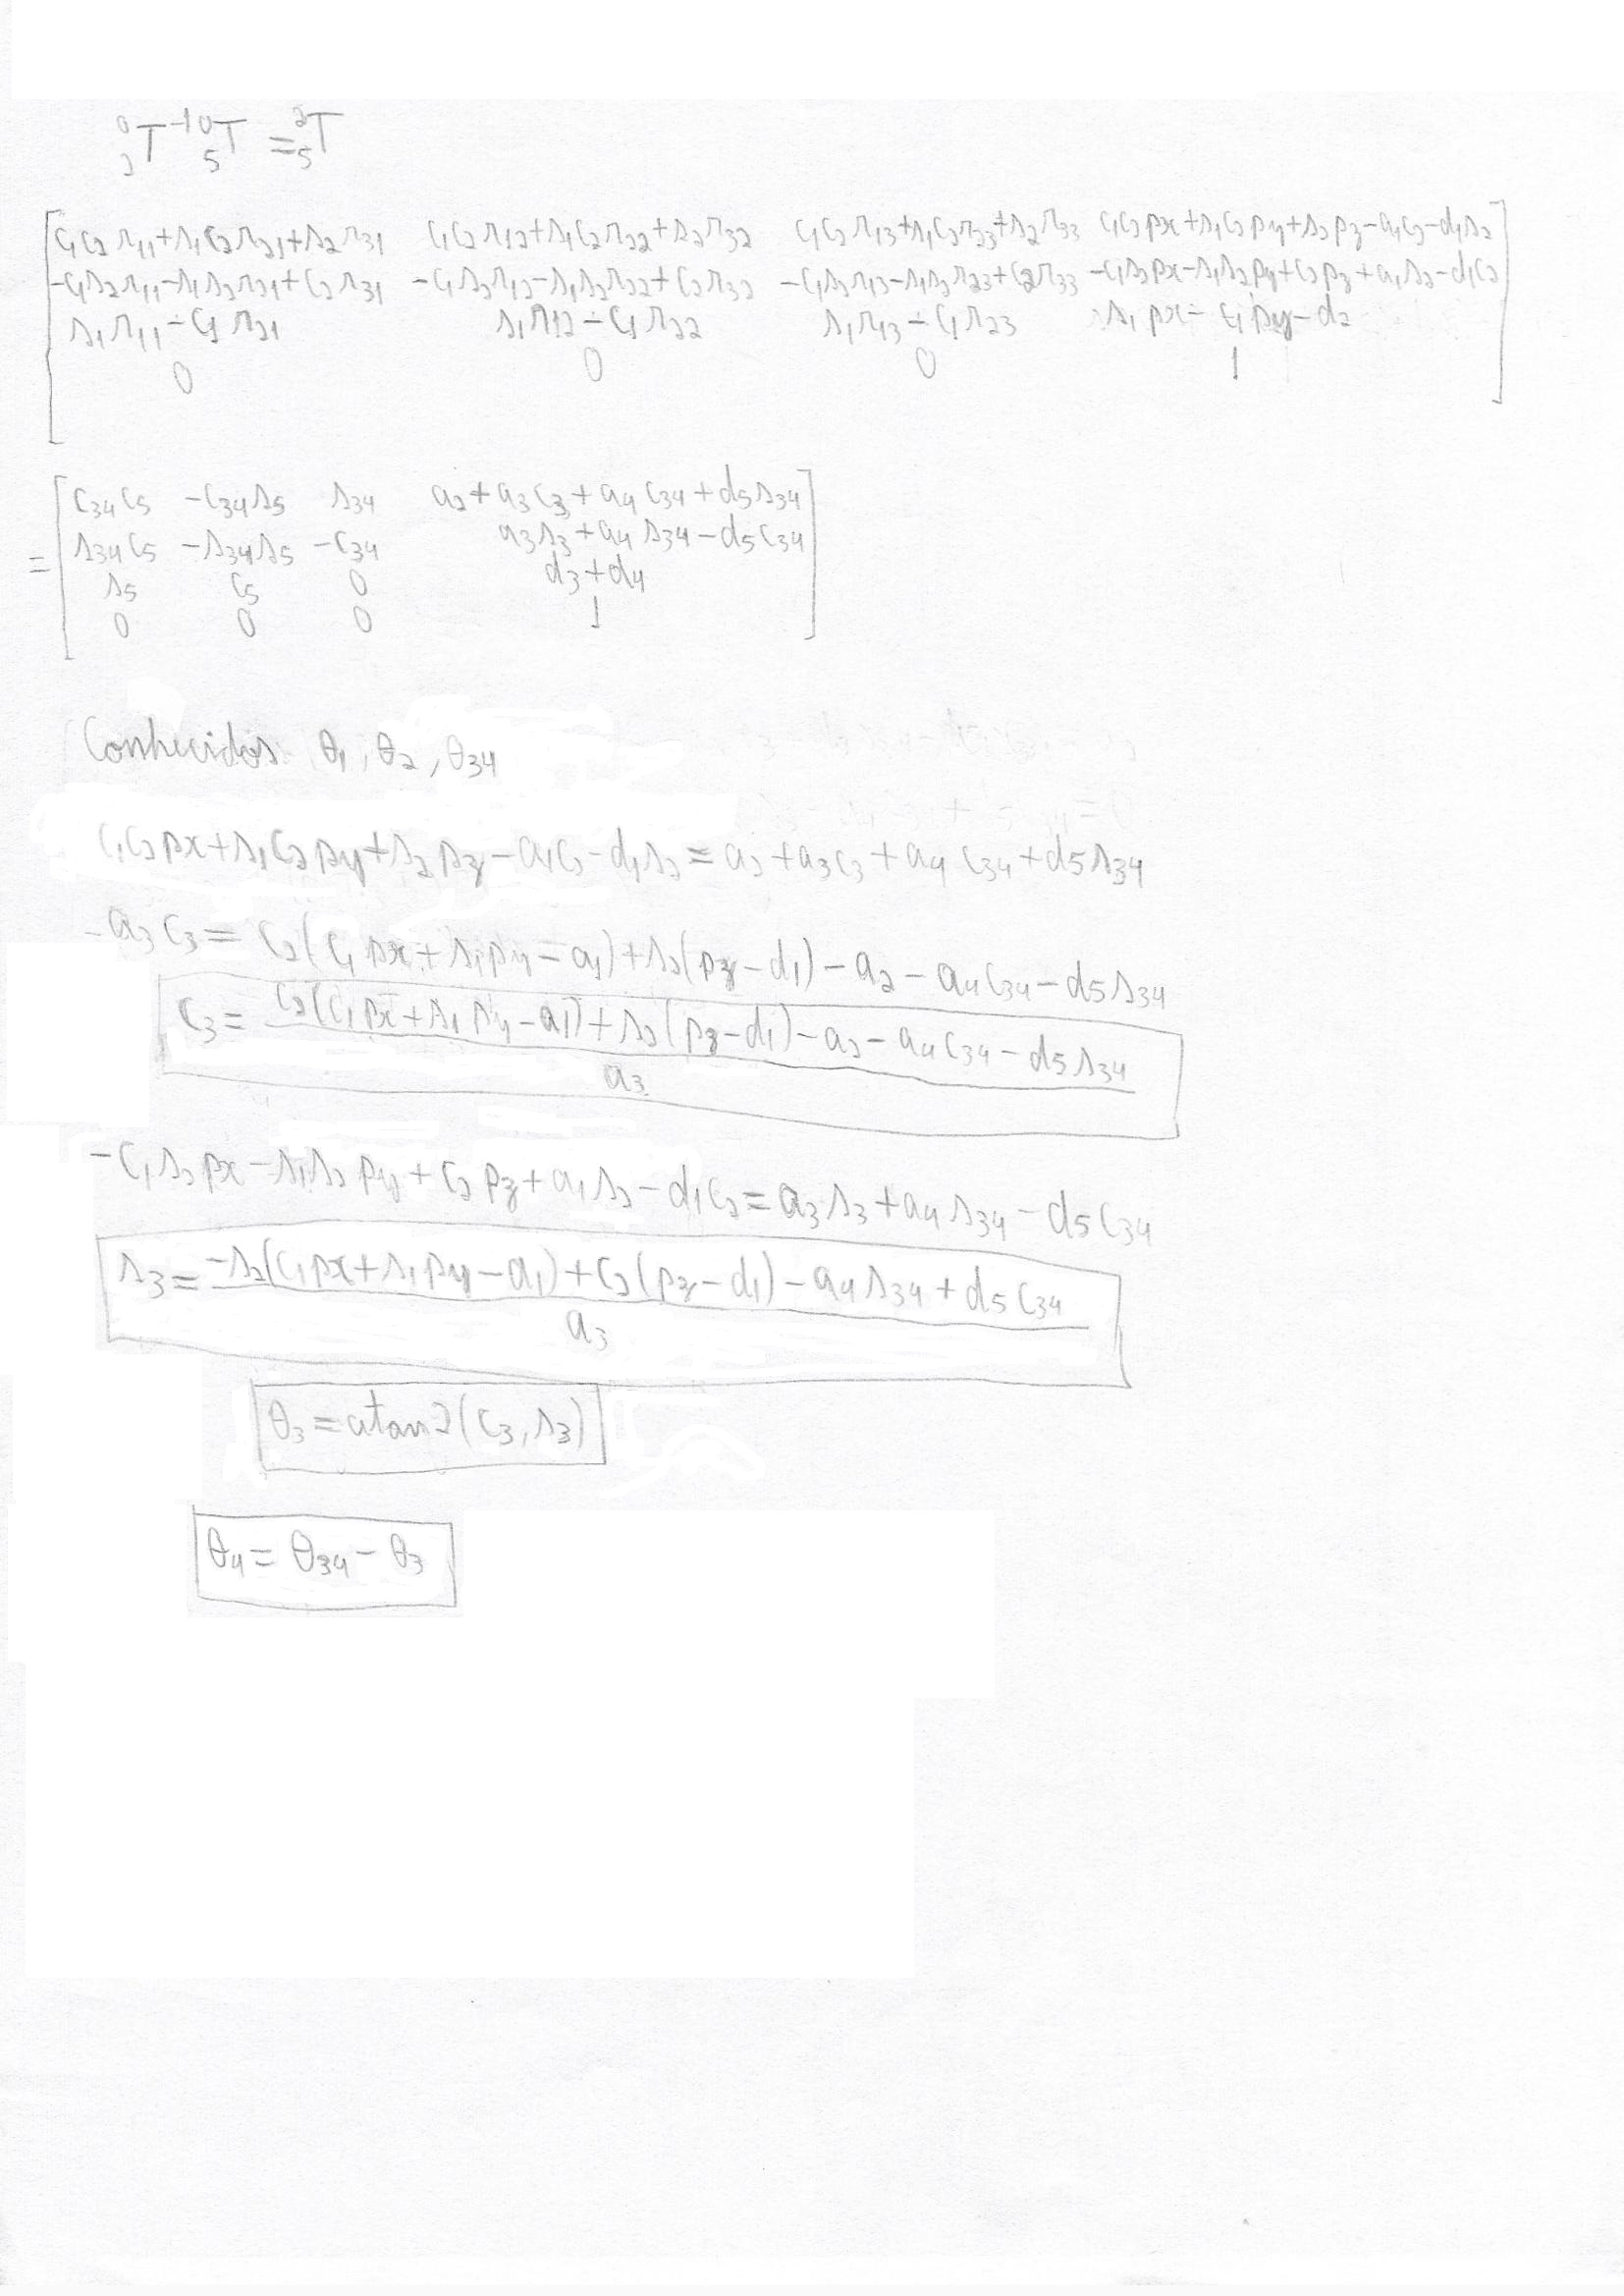 ⁰₂T⁻¹ ⁰₅T = ²₅T
c₁c₂r₁₁+s₁c₂r₂₁+s₂r₃₁ c₁c₂r₁₂+s₁c₂r₂₂+s₂r₃₂ c₁c₂r₁₃+s₁c₂r₂₃+s₂r₃₃ c₁c₂px+s₁c₂py+s₂pz-a₁c₂-d₁s₂
-c₁s₂r₁₁-s₁s₂r₂₁+c₂r₃₁ -c₁s₂r₁₂-s₁s₂r₂₂+c₂r₃₂ -c₁s₂r₁₃-s₁s₂r₂₃+c₂r₃₃ -c₁s₂px-s₁s₂py+c₂pz+a₁s₂-d₁c₂
s₁r₁₁-c₁r₂₁ s₁r₁₂-c₁r₂₂ s₁r₁₃-c₁r₂₃ s₁px-c₁py-d₂
0 0 0 1
c₃₄c₅ -c₃₄s₅ s₃₄ a₂+a₃c₃+a₄c₃₄+d₅s₃₄
= s₃₄c₅ -s₃₄s₅ -c₃₄ a₃s₃+a₄s₃₄-d₅c₃₄
s₅ c₅ 0 d₃+d₄
0 0 0 1
Conhecidos θ₁, θ₂, θ₃₄
c₁c₂px+s₁c₂py+s₂pz-a₁c₂-d₁s₂=a₂+a₃c₃+a₄c₃₄+d₅s₃₄
-a₃c₃=c₂(c₁px+s₁py-a₁)+s₂(pz-d₁)-a₂-a₄c₃₄-d₅s₃₄
c₃= c₂(c₁px+s₁py-a₁)+s₂(pz-d₁)-a₂-a₄c₃₄-d₅s₃₄
a₃
-c₁s₂px-s₁s₂py+c₂pz+a₁s₂-d₁c₂=a₃s₃+a₄s₃₄-d₅c₃₄
s₃= -s₂(c₁px+s₁py-a₁)+c₂(pz-d₁)-a₄s₃₄+d₅c₃₄
a₃
θ₃=atan2(c₃,s₃)
θ₄=θ₃₄-θ₃